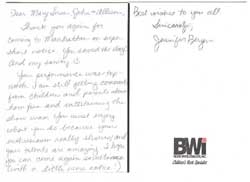 Dear Mary Anne, John & Allison,
Thank you again for
coming to Manhattan on super
short notice. You saved the day
And my sanity ☺
Your performance was top-
notch. I am still getting comments
from children and parents about
how fun and entertaining the
show was. You must enjoy
what you do because your
enthusiasm really shines and
your talents are amazing. I hope
you can come again sometime
(with a little more notice :)
Best wishes to you all
Sincerely,
Jennifer
BWI